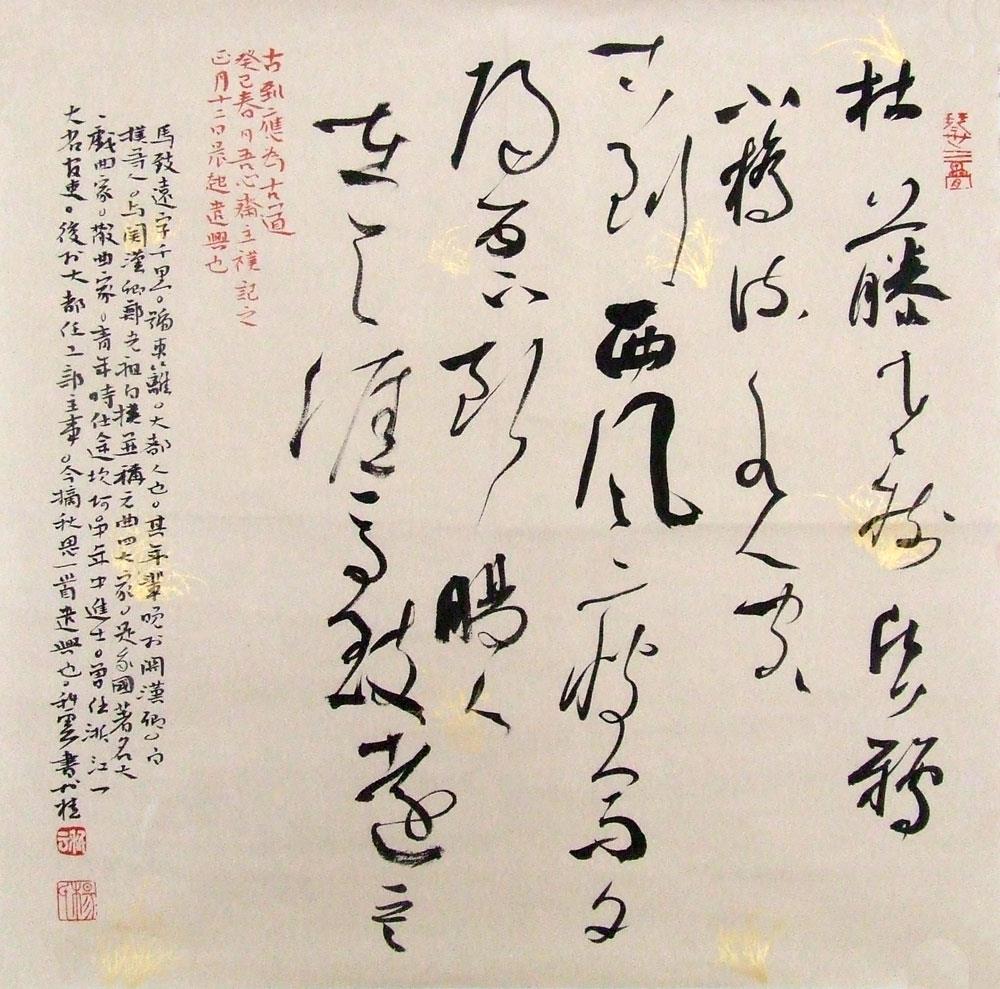 枯藤老樹昏鴉
小橋流水人家
古到西風瘦馬夕
陽西下斷腸人
在天涯馬致遠
古到應為古道
癸巳春月吾心齋主記之
正月十二日晨起遣興也
馬致遠字千里。號東籬。大都人也。其年輩晚於關漢卿。白
樸等人。與關漢卿鄭光祖白樸並稱元曲四大家。是我國著名大
戲曲家。散曲家。青年時仕途坎坷中年中進士。曾任浙江一
大名官吏。後於大都任工部主事。今摘秋思一首遣興也。書於桂